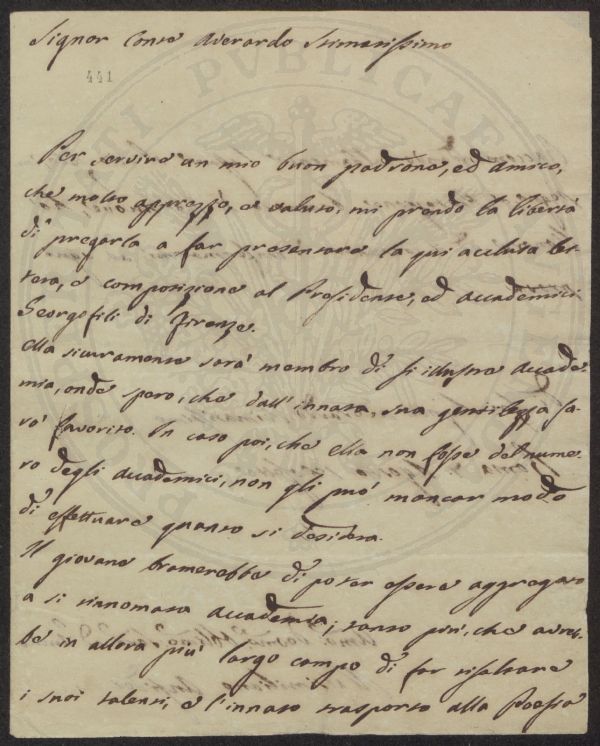 Signor Conte Averardo Stimatissimo
441
Per servire un mio buon padrone, ed amico,
che molto apprezzo, e valuto, mi prendo la libertà
di pregarla a far presentare la qui acclusa let-
tera, e composizione al Presidente, ed accademici
Georgofili di Firenze.
Ella sicuramente sarà membro di sì illustre accade
mia, onde spero, che dall'innata sua gentilezza sa-
rò favorito. In caso poi, che ella non fosse del nume-
ro degli accademici, non gli può mancar modo
di effettuare quanto si desidera.
Il giovane bramerebbe di poter essere aggregato
a sì rinomata accademia; tanto più, che avreb-
be in allora più largo campo di far risaltare
i suoi talenti, e l'innato trasporto alla Poesia